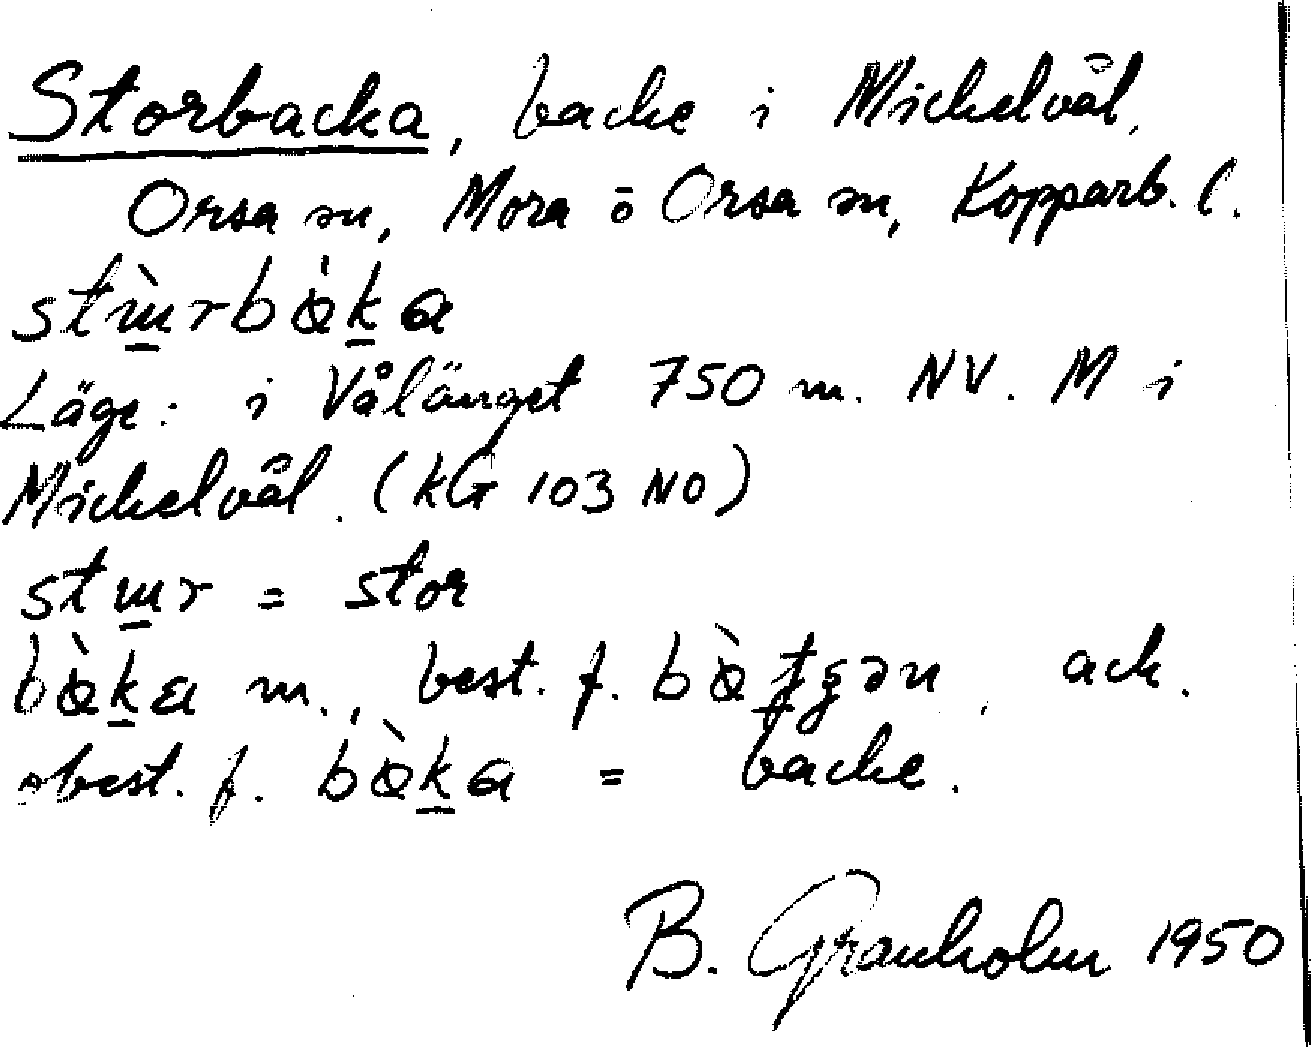 Storbacka, backe i Mickelvål,
Orsa sn, Mora o Orsa sn, Kopparb. l.
Läge: i Vålänget 750 m. NV. M i
Mickelvål. (KG 103 NO)
= stor
m., best. f. ack.
obest. f. = backe.
B. Granholm 1950